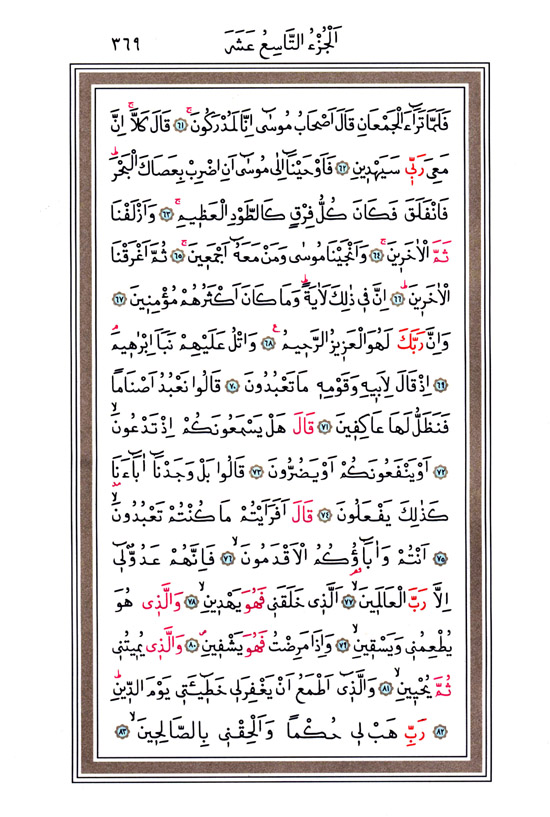 اَلْجُزْءُ التَّاسِعُ عَشَرَ ٣٦٩
فَلَمَّا تَرَٓاءَ الْجَمْعَانِ قَالَ اَصْحَابُ مُوسٰٓى اِنَّا لَمُدْرَكُونَۚ ﴿٦١﴾ قَالَ كَلَّاۚ اِنَّ
مَعِيَ رَبّ۪ي سَيَهْد۪ينِ ﴿٦٢﴾ فَاَوْحَيْنَٓا اِلٰى مُوسٰٓى اَنِ اضْرِبْ بِعَصَاكَ الْبَحْرَۜ
فَانْفَلَقَ فَكَانَ كُلُّ فِرْقٍ كَالطَّوْدِ الْعَظ۪يمِۚ ﴿٦٣﴾ وَاَزْلَفْنَا
ثَمَّ الْاٰخَر۪ينَۚ ﴿٦٤﴾ وَاَنْجَيْنَا مُوسٰى وَمَنْ مَعَهُٓ اَجْمَع۪ينَۚ ﴿٦٥﴾ ثُمَّ اَغْرَقْنَا
الْاٰخَر۪ينَۜ ﴿٦٦﴾ اِنَّ ف۪ي ذٰلِكَ لَاٰيَةًۜ وَمَا كَانَ اَكْثَرُهُمْ مُؤْمِن۪ينَ ﴿٦٧﴾
وَاِنَّ رَبَّكَ لَهُوَ الْعَز۪يزُ الرَّح۪يمُ۟ ﴿٦٨﴾ وَاتْلُ عَلَيْهِمْ نَبَاَ اِبْرٰه۪يمَۢ
﴿٦٩﴾ اِذْ قَالَ لِاَب۪يهِ وَقَوْمِه۪ مَا تَعْبُدُونَ ﴿٧٠﴾ قَالُوا نَعْبُدُ اَصْنَامًا
فَنَظَلُّ لَهَا عَاكِف۪ينَ ﴿٧١﴾ قَالَ هَلْ يَسْمَعُونَكُمْ اِذْ تَدْعُونَۙ
﴿٧٢﴾ اَوْ يَنْفَعُونَكُمْ اَوْ يَضُرُّونَ ﴿٧٣﴾ قَالُوا بَلْ وَجَدْنَٓا اٰبَٓاءَنَا
كَذٰلِكَ يَفْعَلُونَ ﴿٧٤﴾ قَالَ اَفَرَاَيْتُمْ مَا كُنْتُمْ تَعْبُدُونَۙ
﴿٧٥﴾ اَنْتُمْ وَاٰبَٓاؤُ۬كُمُ الْاَقْدَمُونَۙ ﴿٧٦﴾ فَاِنَّهُمْ عَدُوٌّ ل۪ٓي
اِلَّا رَبَّ الْعَالَم۪ينَۙ ﴿٧٧﴾ اَلَّذ۪ي خَلَقَن۪ي فَهُوَ يَهْد۪ينِۙ ﴿٧٨﴾ وَالَّذ۪ي هُوَ
يُطْعِمُن۪ي وَيَسْق۪ينِۙ ﴿٧٩﴾ وَاِذَا مَرِضْتُ فَهُوَ يَشْف۪ينِۖ ﴿٨٠﴾ وَالَّذ۪ي يُم۪يتُن۪ي
ثُمَّ يُحْي۪ينِۙ ﴿٨١﴾ وَالَّذ۪ٓي اَطْمَعُ اَنْ يَغْفِرَ ل۪ي خَط۪ٓيـَٔت۪ي يَوْمَ الدّ۪ينِۜ
﴿٨٢﴾ رَبِّ هَبْ ل۪ي حُكْمًا وَاَلْحِقْن۪ي بِالصَّالِح۪ينَۙ ﴿٨٣﴾